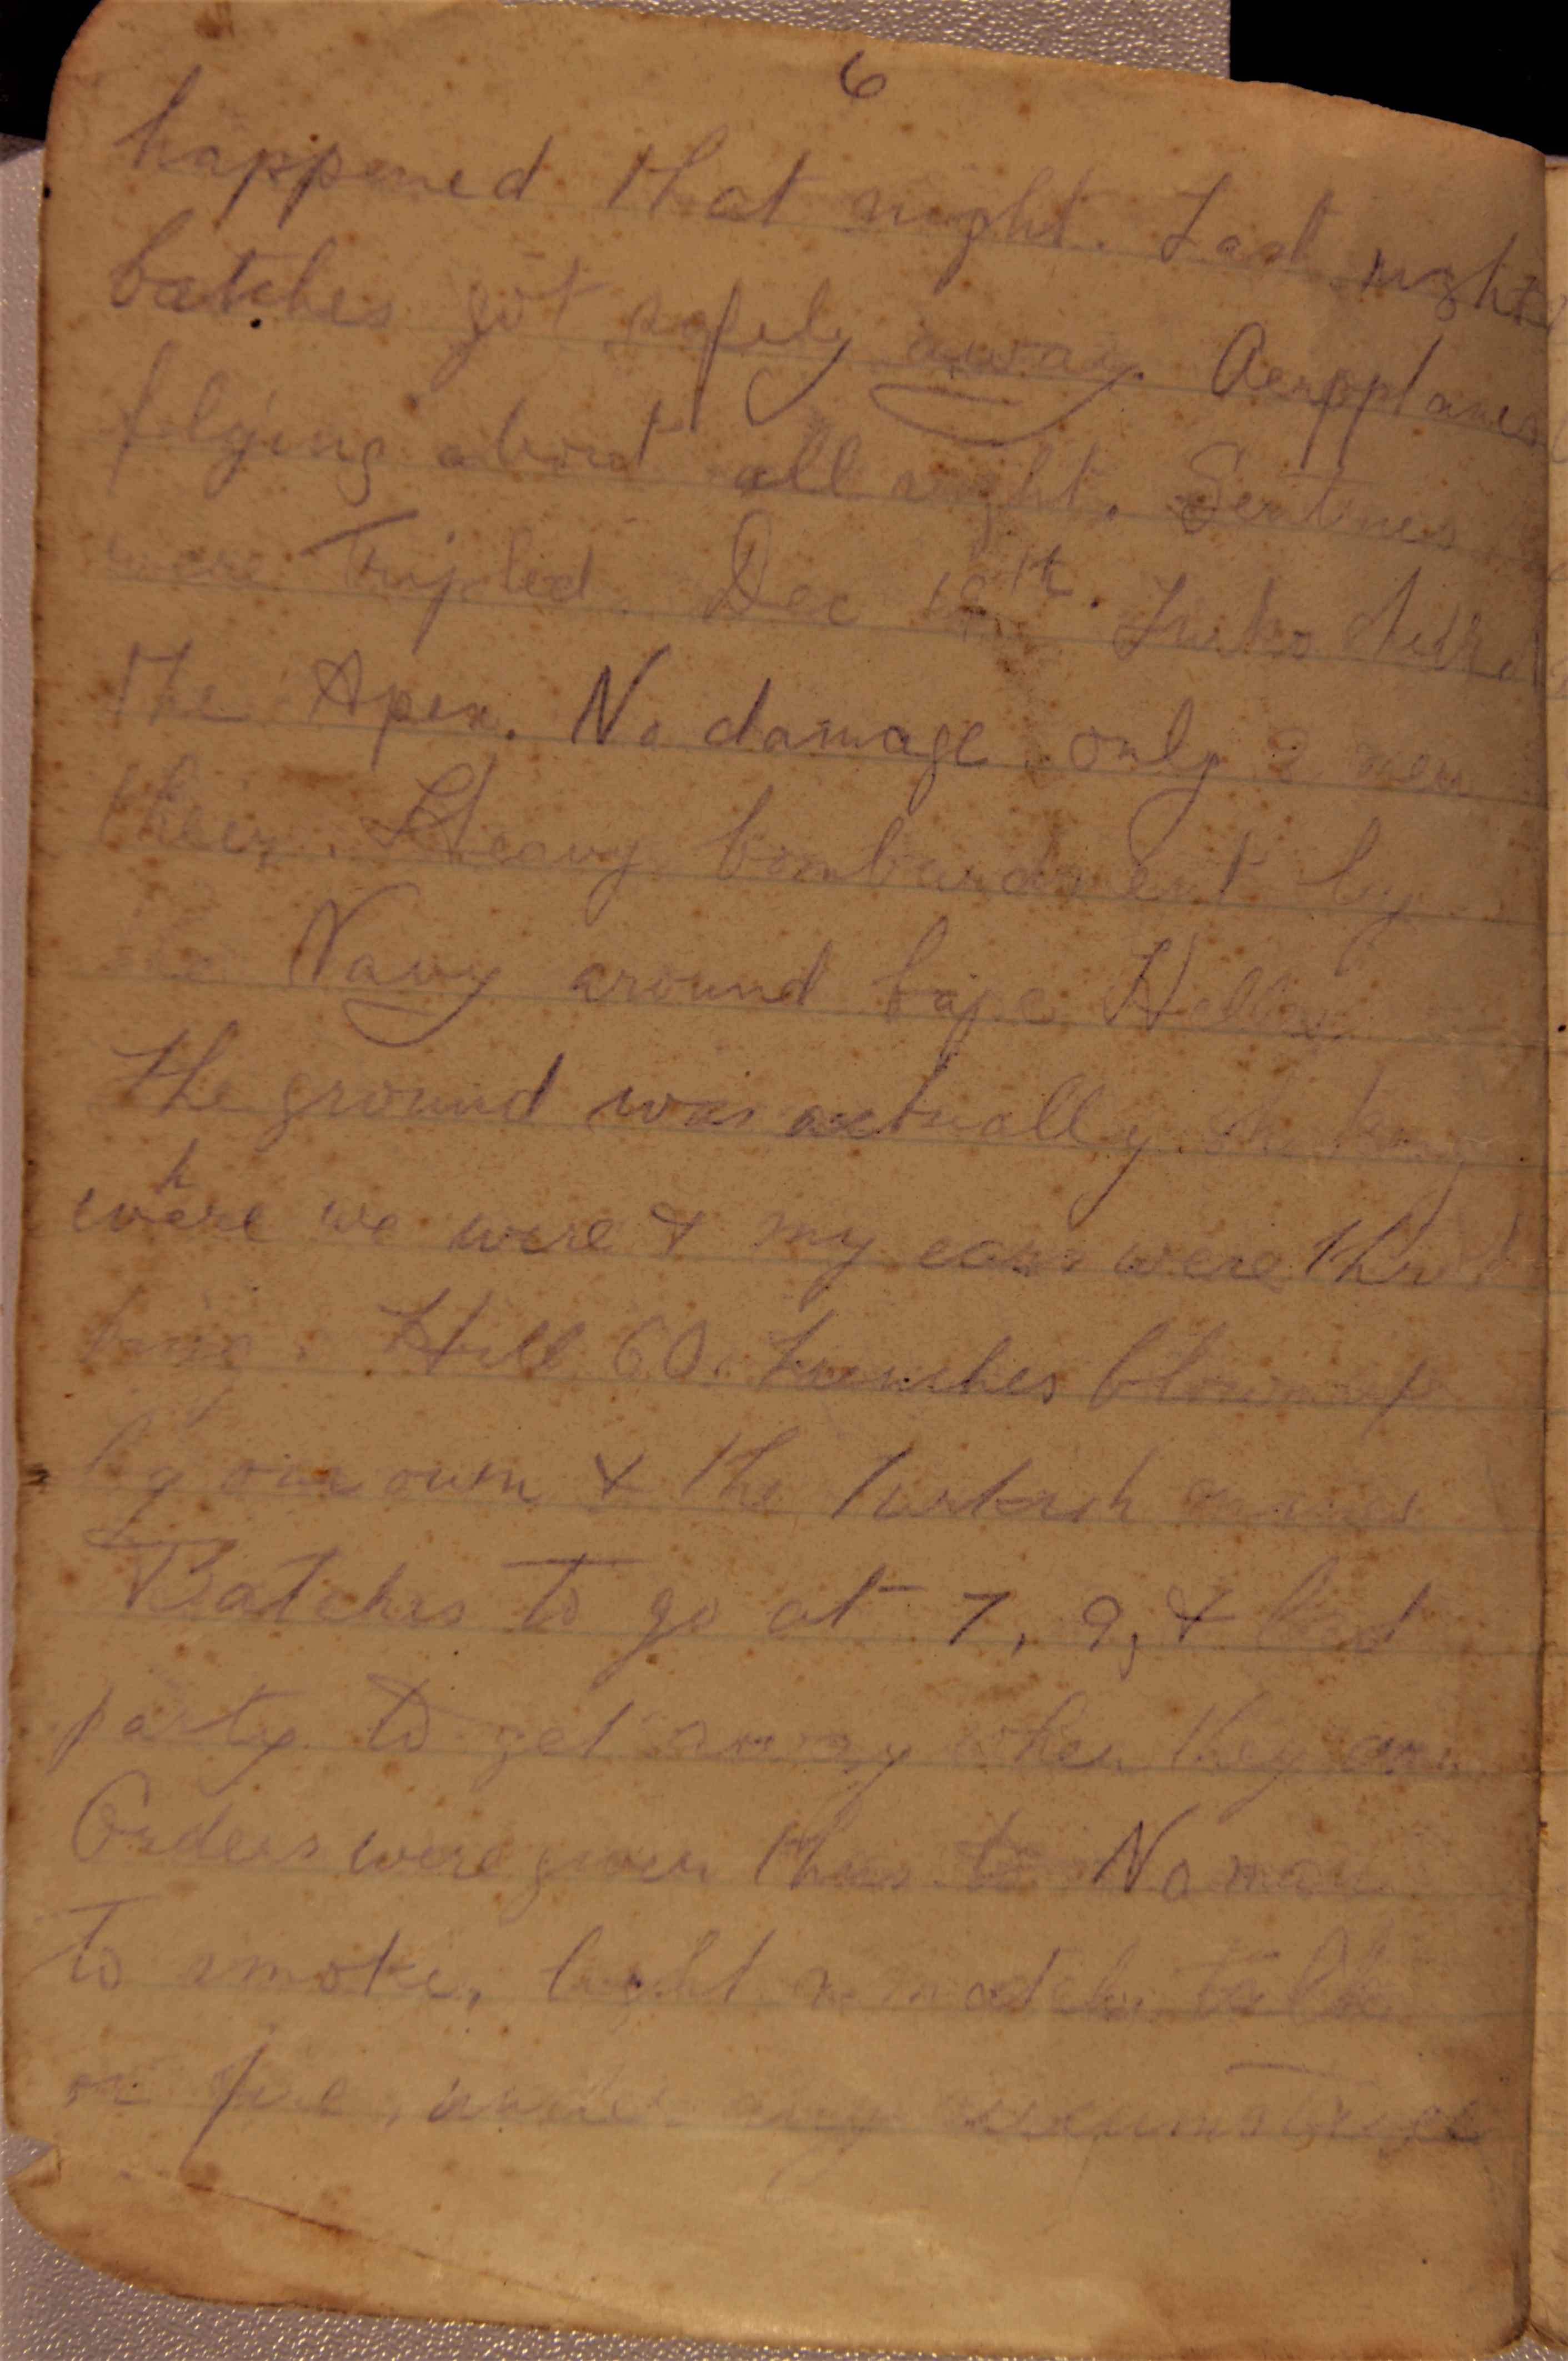 6
happened that night. Last night
batches got safely away. Aeropplanes
flying about all night. Sentries
were Tripled. Dec Turks shelled
the Apex. No damage only 2 men
their. Heavy bombardment by
the Navy around Cape Helles
The ground was actually shaking
where we were & my ears were throb
bing. Hill 60. trenches blown up
by our own & the Turkish mines
Batches to go at 7, 9, & last
party to get away when they can
Orders were given thus to No man
to smoke, light a match, talk
or fire, under any circumstance